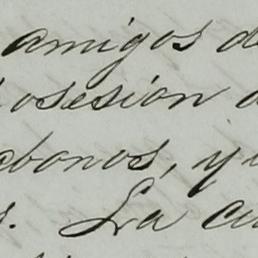 amigos de
osesión
bonos, y
s. La cu